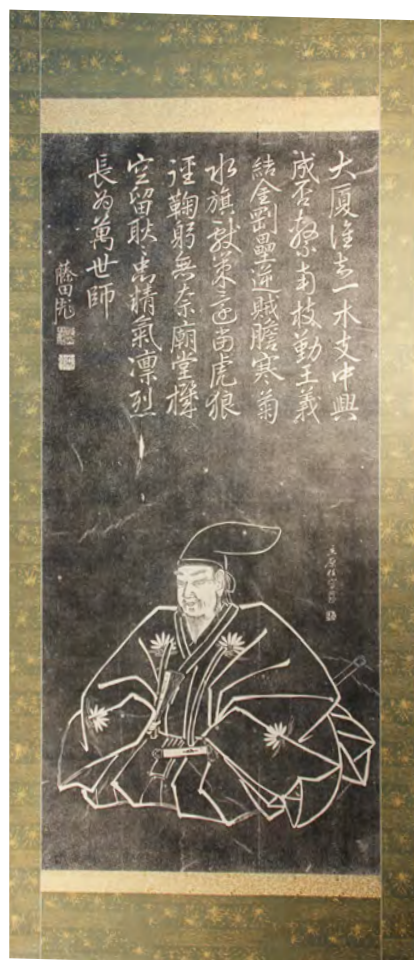 大厦一木支中興
成否繫南枝勤王義
結金剛壘逆賊膽寒菊
水旗獻策虎狼
鞠躬無奈廟堂
空留耿々忠精氣凛烈
長為萬世師
藤田彪